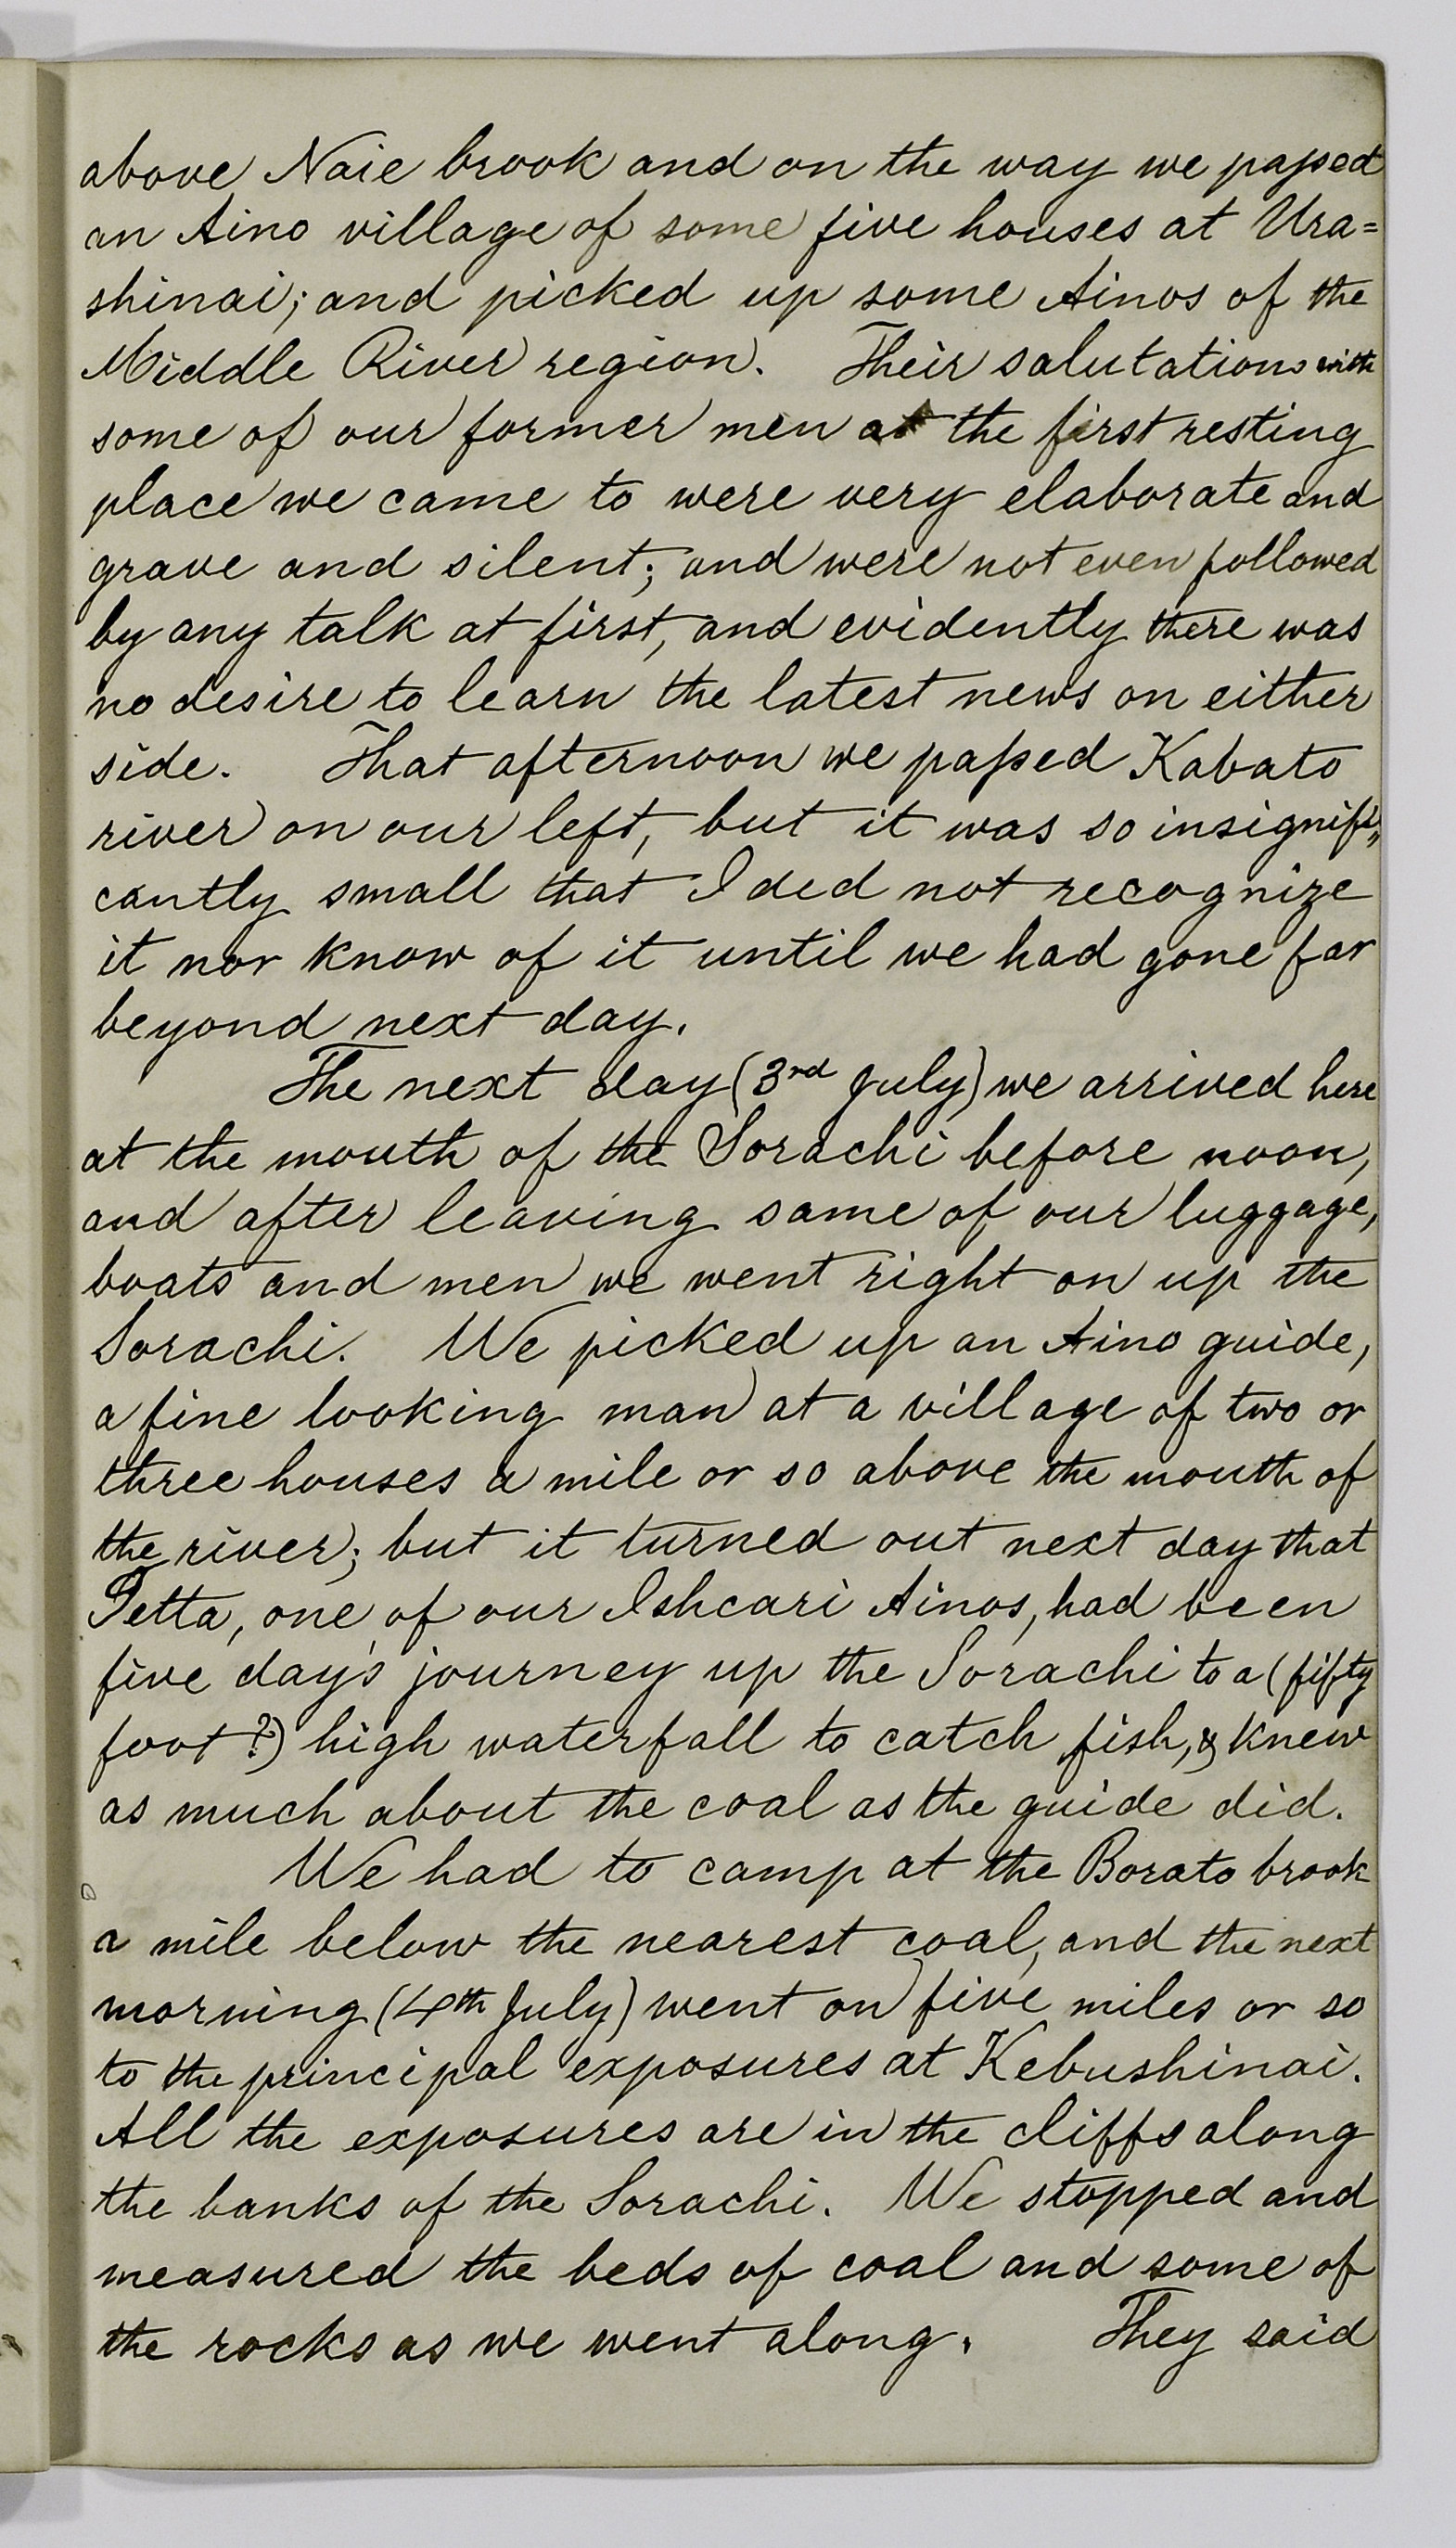 above Naie brook and on the way we passed
an Aino village of some five houses at Ura=
shinai; and picked up some Ainos of the
Middle River region. Their salutations with
some of our former men at the first resting
place we came to were very elaborate and
grave and silent; and were not even followed
by any talk at first, and evidently there was
no desire to learn the latest news on either
side. That afternoon we passed Kabato
river on our left, but it was so insignifi„
cantly small that I did not recognize
it nor know of it until we had gone far
beyond next day.
The next day (3rd July) we arrived here
at the mouth of the Sorachi before noon,
and after leaving some of our luggage,
boats and men we went right on up the
Sorachi. We picked up an Aino guide,
a fine looking man at a village of two or
three houses a mile or so above the mouth of
the river; but it turned out next day that
Petta, one of our Ishcari Ainos, had been
five day's journey up the Sorachi to a (fifty
foot?) high waterfall to catch fish, & knew
as much about the coal as the guide did.
We had to camp at the Borato brook
a mile below the nearest coal, and the next
morning (4th July) went on five miles or so
to the principal exposures at Kebushinai.
All the exposures are in the cliffs along
the banks of the Sorachi. We stopped and
measured the beds of coal and some of
the rocks as we went along. They said